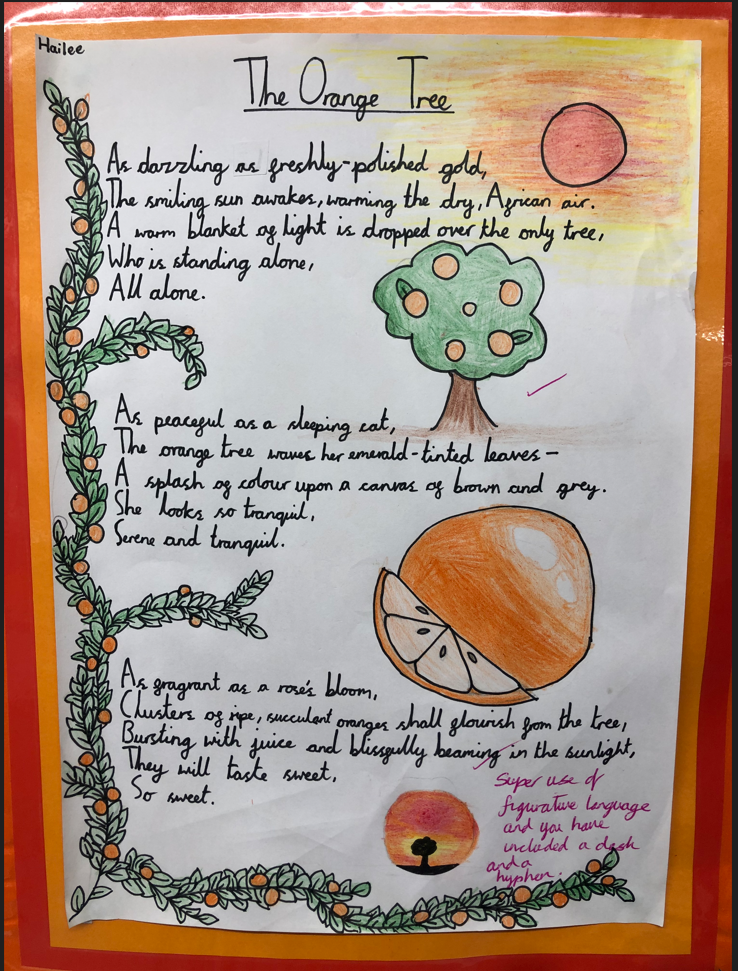 Hailee
The Orange Tree
As dazzling as freshly-polished gold,
The smiling sun awakes, warming the dry, African air.
A warm blanket of light is dropped over the only tree,
Who is standing alone,
All alone.
As peaceful as a sleeping cat,
The orange tree waves her emerald-tinted leaves–
A splash of colour upon a canvas of brown and grey.
She looks so tranquil,
Serene and tranquil.
As fragrant as a rose's bloom,
Clusters of ripe, succulant oranges shall flourish from the tree,
Bursting with juice and blissfully beaming in the sunlight,
They will taste sweet,
So sweet.
Super use of
figurative language
and you have
included a dash
and a
hyphen.